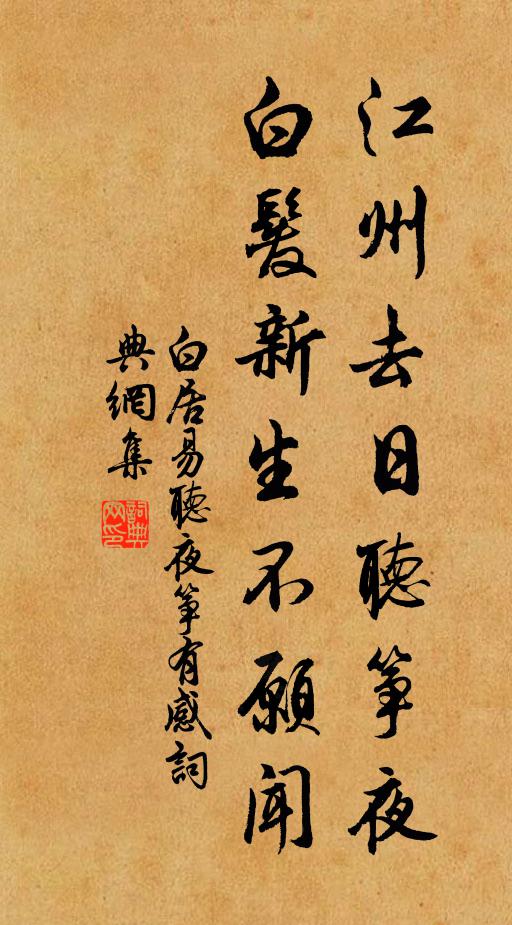 江州去日聽筝夜
白髮新生不願聞
白居易聽夜筝有感詞
典網集
詞典
网印